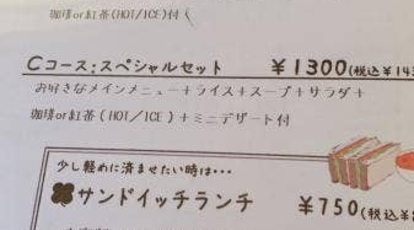 珈琲or紅茶(HOT/ICE)付
Cコース:スペシャルセット ¥1300(税込¥143
お好きなメインメニュー+ライス+スープ+サラダ+
珈琲or紅茶(HOT/ICE)+ミニデザート付
少し軽めに済ませたい時は…
サンドイッチランチ ¥750(税込¥8